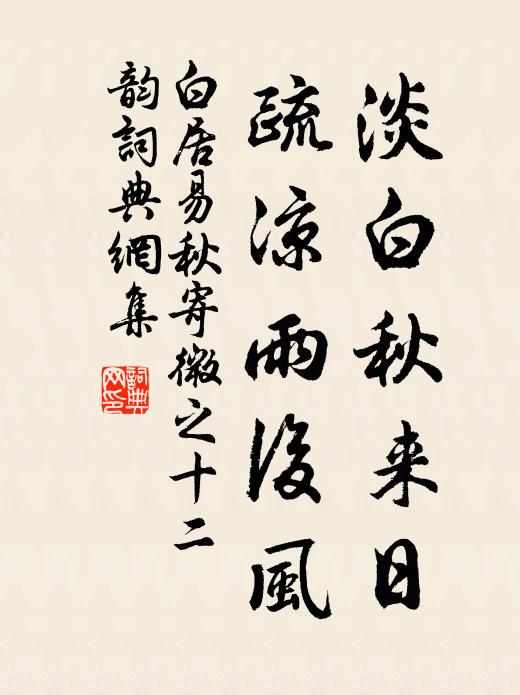 淡白秋来日
疏涼雨後風
白居易秋寄微之十二
韵詞典網集
詞典
网印